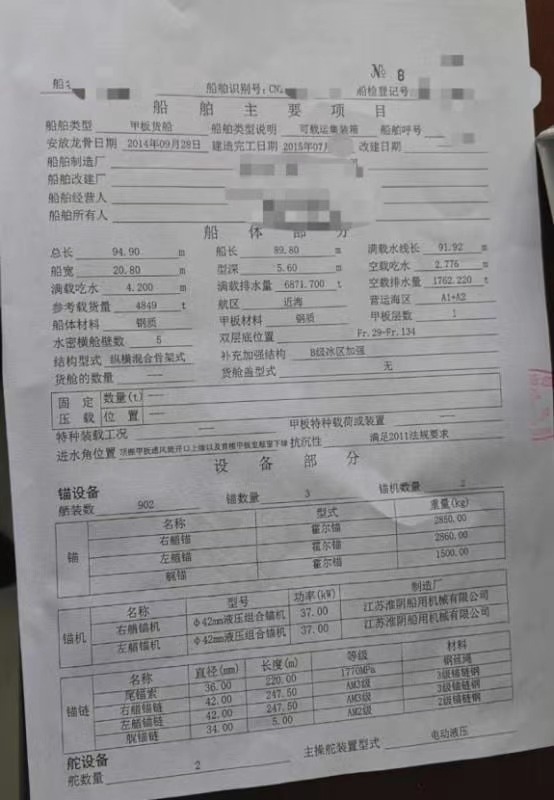 № 8
船舶识别号: CN 船检登记号
船舶主要项目
船舶类型 甲板货船 船舶类型说明 可载运集装箱 船舶呼号
安放龙骨日期 2014年09月28日 建造完工日期 2015年07 改建日期
船舶制造厂
船舶改建厂
船舶经营人
船舶所有人
船体部分
总长 94.90 m 船长 89.80 m 满载水线长 91.92 m
船宽 20.80 m 型深 5.60 m 空载吃水 2.776 m
满载吃水 4.200 m 满载排水量 6871.700 t 空载排水量 1762.220 t
参考载货量 4849 t 航区 近海 营运海区 A1+A2
船体材料 钢质 甲板材料 钢质 甲板层数 1
水密横舱壁数 5 双层底位置 Fr.29-Fr.134
结构型式 纵横混合骨架式 补充加强结构 B级冰区加强
货舱的数量 —— 货舱盖型式 无
固定压载 数量(t) ——
位置 ——
特种装载工况 —— 甲板特种载荷或装置 ——
进水角位置 抗沉性 满足2011法规要求
设备部分
锚设备
舾装数 902 锚数量 3 锚机数量 2
锚 名称 型式 重量(kg)
右艏锚 霍尔锚 2850.00
左艏锚 霍尔锚 2860.00
艉锚 霍尔锚 1500.00
锚机 名称 型号 功率(kW) 制造厂
右艏锚机 φ42mm液压组合锚机 37.00 江苏淮阴船用机械有限公司
左艏锚机 φ42mm液压组合锚机 37.00 江苏淮阴船用机械有限公司
锚链 名称 直径(mm) 长度(m) 等级 材料
尾锚索 36.00 220.00 1770MPa 钢丝绳
右艏锚链 42.00 247.50 AM3级 3级锚链钢
左艏锚链 42.00 247.50 AM3级 3级锚链钢
艉锚链 34.00 5.00 AM2级 2级锚链钢
舵设备
舵数量 2 主操舵装置型式 电动液压